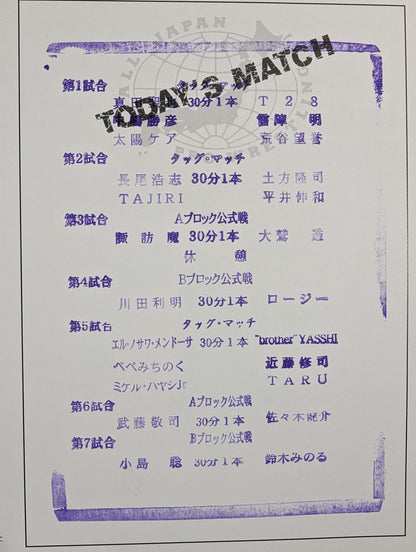 ALL JAPAN
PRO-WRESTLING
TODAY'S MATCH
第1試合
30分1本 T28
勝彦 雷陣 明
太陽ケア 荒谷望誉
第2試合 タッグ・マッチ
長尾浩志 30分1本 土方隆司
TAJIRI 平井伸和
第3試合 Aブロック公式戦
諏訪魔 30分1本 大鷲 透
休憩
第4試合 Bブロック公式戦
川田利明 30分1本 ロージー
第5試合 タッグ・マッチ
エル・ノサワ・メンドーサ 30分1本 "brother" YASSHI
ペペみちのく 近藤修司
ミゲル・ハヤシJr TARU
第6試合 Aブロック公式戦
武藤敬司 30分1本 佐々木健介
第7試合 Bブロック公式戦
小島 聡 30分1本 鈴木みのる